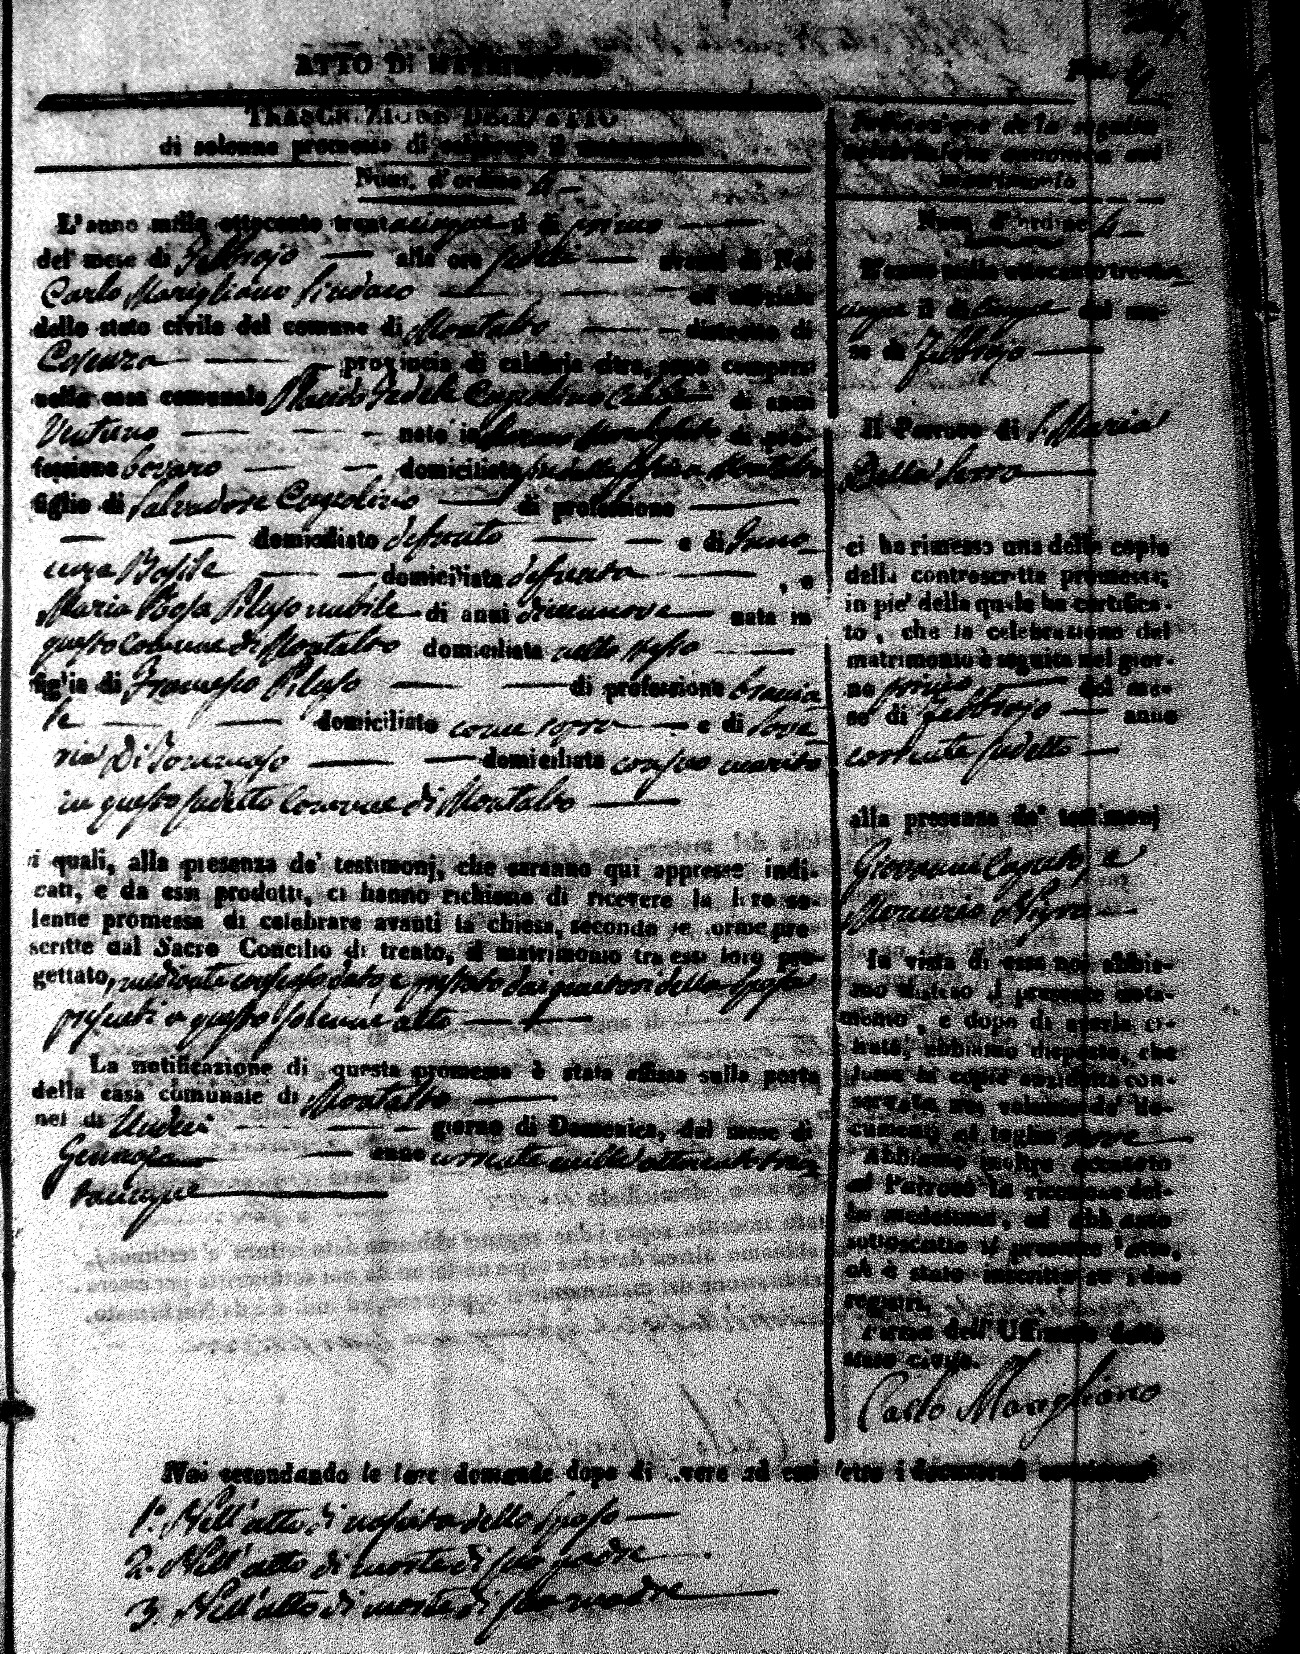 ATTO DI MATRIMONIO
TRASCRIZIONE DELL'ATTO
di solenne promessa di celebrare il matrimonio
Num. d'ordine 4
L'anno mille ottocento trentacinque il di primo
del mese di Febbrajo alle ore avanti di Noi
Carlo Marigliano Sindaco ed uffiziale
dello stato civile del comune di Montalto distretto di
Cosenza provincia di calabria citra, sono comparsi
nella casa comunale Placido Fedele di anni
Ventuno nato in di pro-
fessione bovaro domiciliato Montalto
figlio di Salvadore di professione
domiciliato defunto e di Inno-
cenza Basile domiciliata defunta , e
Maria Rosa Pilusо nubile di anni diecinnove nata in
questo Comune di Montalto domiciliata nello stesso
figlia di Francesco Piluso di professione braccia
le domiciliato come sopra e di
ria Di Tommaso domiciliata con suo marito
in questo sudetto Comune di Montalto
i quali, alla presenza de' testimonj, che saranno qui appresso indi-
cati, e da essi prodotti, ci hanno richiesto di ricevere la loro so-
lenne promessa di celebrare avanti la chiesa, secondo le forme pre-
scritte dal Sacro Concilio di trento, il matrimonio tra essi loro pro-
gettato, mediante consenso dato, e prestato dai genitori della Sposa
presenti a questo solenne atto
La notificazione di questa promessa è stata affissa sulla porta
della casa comunale di Montalto
nel di Undeci giorno di Domenica, del mese di
Gennajo anno corrente mille ottocento tren
tacinque
Num. d'ordine 4
L'anno mille ottocento trenta-
cinque il di cinque del me-
se di Febbrajo
Il Parroco di S. Maria
Della Serra
ci ha rimesso una delle copie
della controscritta promessa;
in piè della quale ha certifica-
to, che la celebrazione del
matrimonio è seguita nel gior-
no primo del me-
se di Febbrajo anno
corrente sudetto
alla presenza de' testimonj
Giovanni e
Nigro
In vista di essa noi abbia-
mo disteso il presente nota-
mento, e dopo di averla ci-
frata, abbiamo disposto, che
fosse la copia anzidetta con-
servata nel volume de' do-
cumenti al foglio nove
Abbiamo inoltre accusato
al Parroco la ricezione del-
la medesima, ed abbiamo
sottoscritto il presente atto,
ch'è stato inscritto su i due
registri.
Firma dell'Uffiziale dello
stato civile.
Carlo Marigliano
Noi secondando le loro domande dopo di avere ad essi letto i documenti consistenti
1.° Nell'atto di nascita dello Sposo
2. Nell'atto di morte di suo padre
3. Nell'atto di morte di sua madre